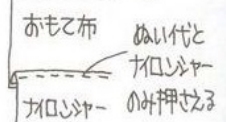 おもて布
ぬい代と
ナイロンシャー
のみ押さえる
ナイロンシャー